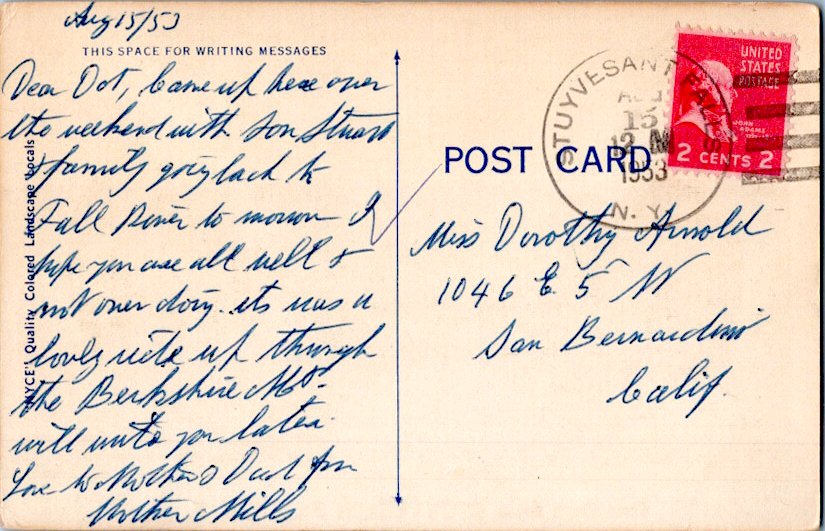 Aug 15/53
THIS SPACE FOR WRITING MESSAGES
Dear Dot, Came up here over
the weekend with Son Stuart
& family going back to
Fall River to morrow I
hope you are all well &
not over doing. its was a
lovely ride up through
the Berkshire Mts.
will write you later.
Love to Mother & Dad from
Mother Mills
Quality Colored Landscape Vocals
POST CARD
STUYVESANT FALLS
AUG
15
12 M
1953
N. Y.
UNITED
STATES
POSTAGE
JOHN
ADAMS
2 CENTS 2
Miss Dorothy Arnold
1046 E. 5 St
San Bernardino
Calif.